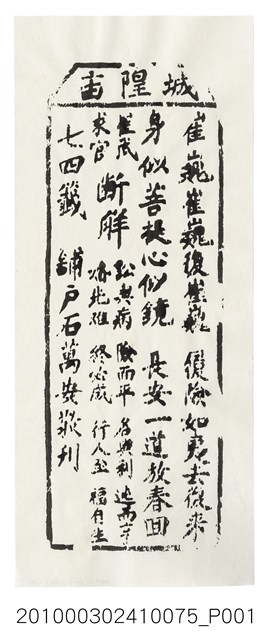 城隍
崔巍崔巍復崔巍 履險如夷去復來
身似菩提心似鏡 長安一道放春回
崔氏求官
斷解
訟與病 險而平 名與利 遲而亨
婚非難 終必成 行人至 福自生
七四籤 舖戶石萬安敬刊
201000302410075_P001